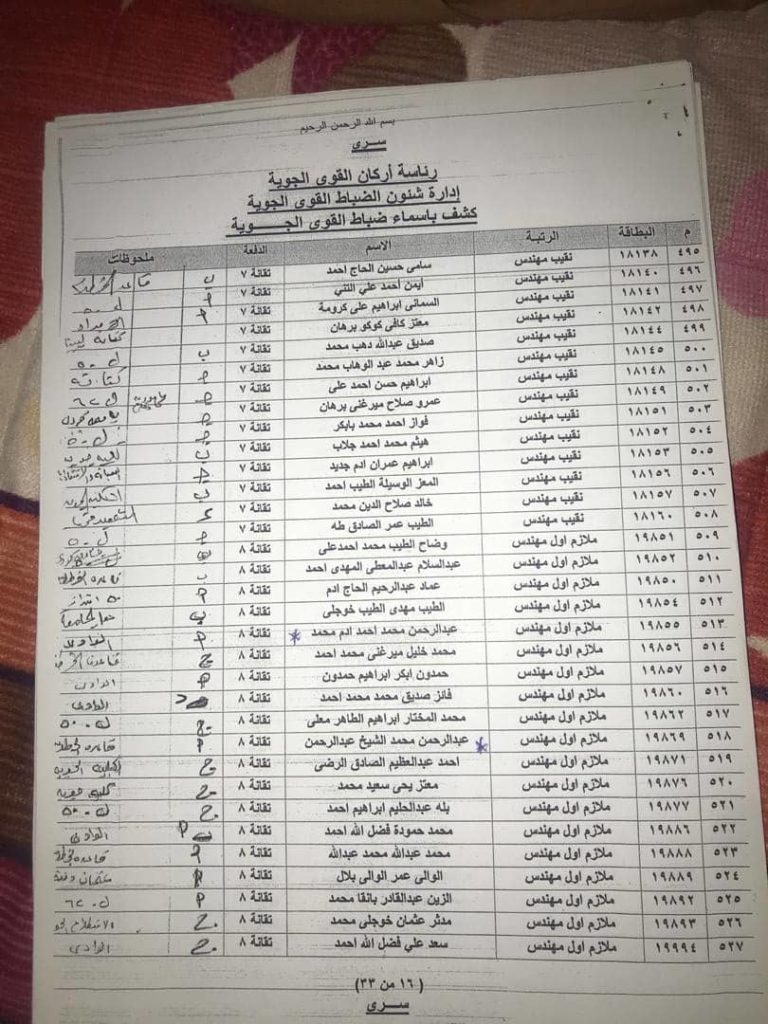 بسم الله الرحمن الرحيم
سرى
رئاسة أركان القوى الجوية
إدارة شئون الضباط القوى الجوية
كشف باسماء ضباط القوى الجوية
م البطاقة الرتبة الاسم الدفعة ملحوظات
٤٩٥ ١٨١٣٨ نقيب مهندس سامى حسين الحاج احمد تقانة ٧ ب
٤٩٦ ١٨١٤٠ نقيب مهندس أيمن أحمد علي الثني تقانة ٧
٤٩٧ ١٨١٤١ نقيب مهندس السمانى ابراهيم على كرومة تقانة ٧
٤٩٨ ١٨١٤٢ نقيب مهندس معتز كافى كوكو برهان تقانة ٧
٤٩٩ ١٨١٤٤ نقيب مهندس صديق عبدالله دهب محمد تقانة ٧ ب
٥٠٠ ١٨١٤٥ نقيب مهندس زاهر محمد عبد الوهاب محمد تقانة ٧
٥٠١ ١٨١٤٨ نقيب مهندس ابراهيم حسن احمد على تقانة ٧
٥٠٢ ١٨١٤٩ نقيب مهندس عمرو صلاح ميرغنى برهان تقانة ٧
٥٠٣ ١٨١٥١ نقيب مهندس فواز احمد محمد بابكر تقانة ٧
٥٠٤ ١٨١٥٢ نقيب مهندس هيثم محمد احمد جلاب تقانة ٧
٥٠٥ ١٨١٥٣ نقيب مهندس ابراهيم عمران ادم جديد تقانة ٧
٥٠٦ ١٨١٥٦ نقيب مهندس المعز الوسيلة الطيب احمد تقانة ٧
٥٠٧ ١٨١٥٧ نقيب مهندس خالد صلاح الدين محمد تقانة ٧
٥٠٨ ١٨١٦٠ نقيب مهندس الطيب عمر الصادق طه تقانة ٧
٥٠٩ ١٩٨٥١ ملازم اول مهندس وضاح الطيب محمد احمدعلى تقانة ٨
٥١٠ ١٩٨٥٢ ملازم اول مهندس عبدالسلام عبدالمعطى المهدى احمد تقانة ٨
٥١١ ١٩٨٥٠ ملازم اول مهندس عماد عبدالرحيم الحاج ادم تقانة ٨
٥١٢ ١٩٨٥٤ ملازم اول مهندس الطيب مهدى الطيب خوجلى تقانة ٨
٥١٣ ١٩٨٥٥ ملازم اول مهندس عبدالرحمن محمد احمد ادم محمد * تقانة ٨ الوادى
٥١٤ ١٩٨٥٦ ملازم اول مهندس محمد خليل ميرغنى محمد احمد تقانة ٨ ج
٥١٥ ١٩٨٥٧ ملازم اول مهندس حمدون ابكر ابراهيم حمدون تقانة ٨ الوادى
٥١٦ ١٩٨٦٠ ملازم اول مهندس فائز صديق محمد محمد احمد تقانة ٨ الوادى
٥١٧ ١٩٨٦٢ ملازم اول مهندس محمد المختار ابراهيم الطاهر معلى تقانة ٨ ج
٥١٨ ١٩٨٦٩ ملازم اول مهندس عبدالرحمن محمد الشيخ عبدالرحمن * تقانة ٨
٥١٩ ١٩٨٧١ ملازم اول مهندس احمد عبدالعظيم الصادق الرضى تقانة ٨ ج
٥٢٠ ١٩٨٧٦ ملازم اول مهندس معتز يحى سعيد محمد تقانة ٨ ج
٥٢١ ١٩٨٧٧ ملازم اول مهندس بله عبدالحليم ابراهيم احمد تقانة ٨ ج
٥٢٢ ١٩٨٨٦ ملازم اول مهندس محمد حمودة فضل الله احمد تقانة ٨ الوادى
٥٢٣ ١٩٨٨٨ ملازم اول مهندس محمد عبدالله محمد عبدالله تقانة ٨
٥٢٤ ١٩٨٨٩ ملازم اول مهندس الوالى عمر الوالى بلال تقانة ٨
٥٢٥ ١٩٨٩٢ ملازم اول مهندس الزين عبدالقادر بانقا محمد تقانة ٨
٥٢٦ ١٩٨٩٣ ملازم اول مهندس مدثر عثمان خوجلى محمد تقانة ٨ ج
٥٢٧ ١٩٩٩٤ ملازم اول مهندس سعد علي فضل الله احمد تقانة ٨ ج الوادى
(١٦ من ٣٣)
سرى